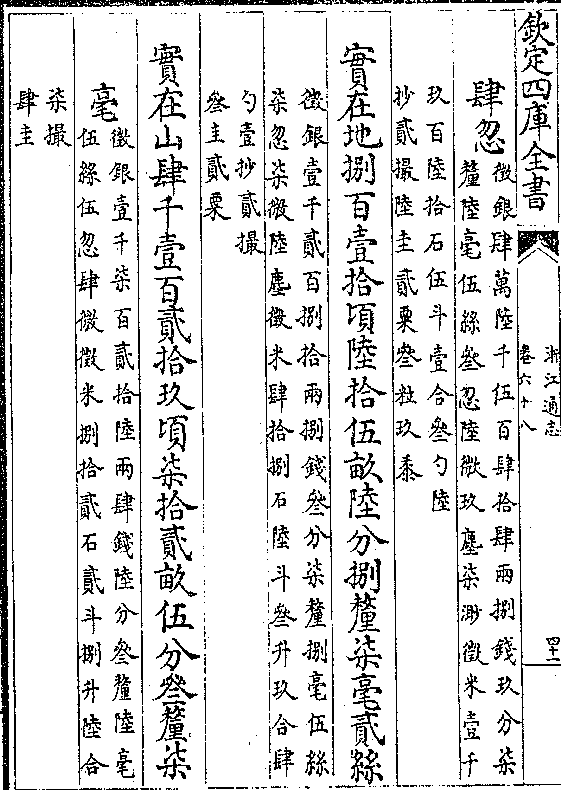 欽定四庫全書
浙江通志
卷六十八
四十一
肆忽
徵銀肆萬陸千伍百肆拾肆兩捌錢玖分柒
釐陸毫伍絲叁忽陸微玖塵柒渺徵米壹千
玖百陸拾石伍斗壹合叁勺陸
抄貳撮陸圭貳粟叁粒玖黍
實在地捌百壹拾頃陸拾伍畝陸分捌釐柒毫貳絲
徵銀壹千貳百捌拾兩捌錢叁分柒釐捌毫伍絲
柒忽柒微陸塵徵米肆拾捌石陸斗叁升玖合肆
勺壹抄貳撮
叁圭貳粟
實在山肆千壹百貳拾玖頃柒拾貳畝伍分叁釐柒
毫
徵銀壹千柒百貳拾陸兩肆錢陸分叁釐陸毫
伍絲伍忽肆微徵米捌拾貳石貳斗捌升陸合
柒撮
肆圭